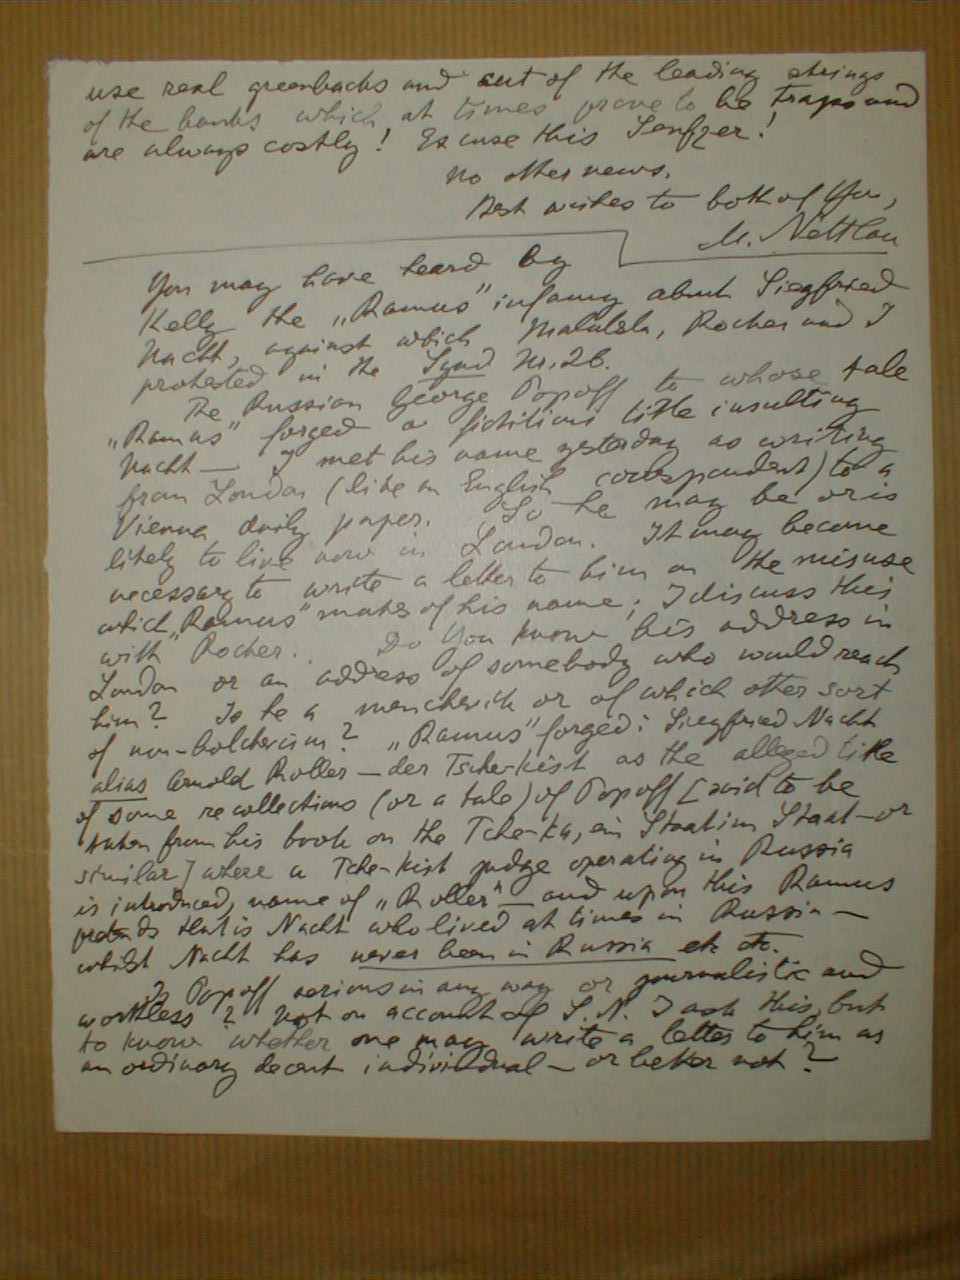 use real greenbacks and out of the leading strings
of the banks which at times prove to be traps and
are always costly! Excuse this Seufzer!
No other news.
Best wishes to both of You,
M. Nettlau
You may have heard by
Kelly the „Ramus" infamy about Siegfried
Nacht, against which Malatesta, Rocker and I
protested in the Synd Nr. 26.
The Russian George Popoff to whose tale
„Ramus" forged a fictitious title insulting
Nacht — I met his name yesterday as writing
from London (like an English correspondent) to a
Vienna daily paper. So he may be or is
likely to live now in London. It may become
necessary to write a letter to him on the misuse
which „Ramus" makes of his name; I discuss this
with Rocker. Do You know his address in
London or an address of somebody who would reach
him? Is he a menchevik or of which other sort
of non-bolchevism? „Ramus" forged: Siegfried Nacht
alias Arnold Roller — der Tsche-kist as the alleged title
of some recollections (or a tale) of Popoff [said to be
taken from his book on the Tche-ka, ein Staat im Staat — or
similar] where a Tche-kist judge operating in Russia
is introduced, name of „Roller" — and upon this Ramus
pretends that is Nacht who lived at times in Russia —
whilst Nacht has never been in Russia etc. etc.
Is Popoff serious in any way or journalistic and
worthless? Not on account of S. N. I ask this, but
to know whether one may write a letter to him as
an ordinary decent individual — or better not?